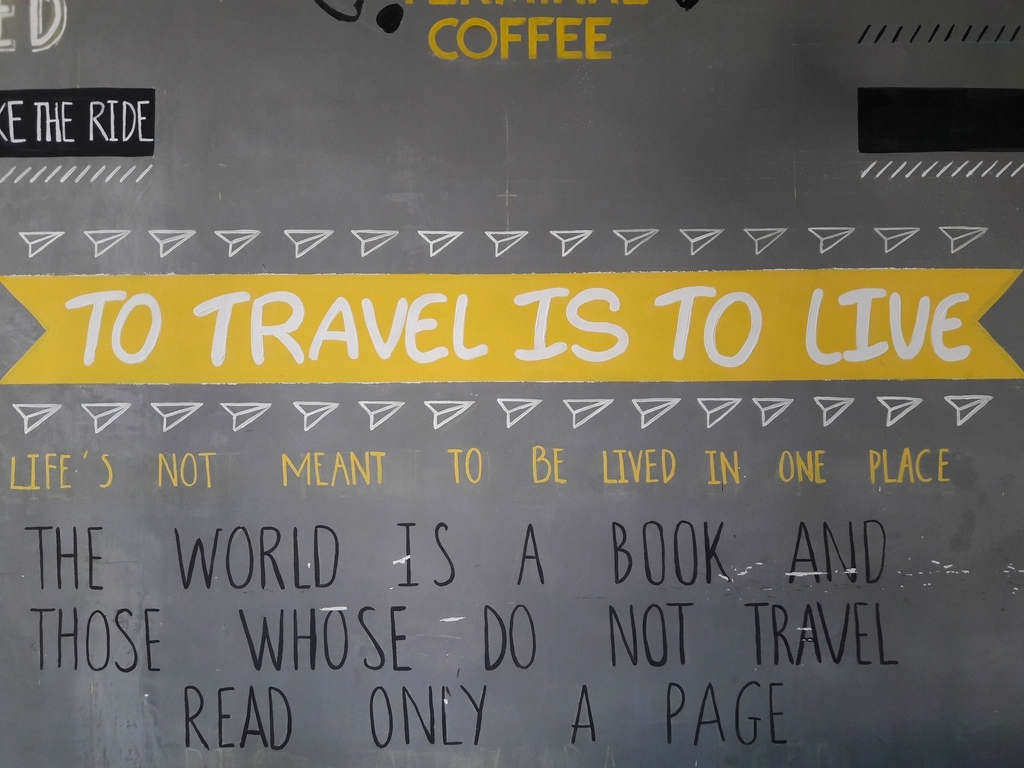 COFFEE
THE RIDE
TO TRAVEL IS TO LIVE
LIFE'S NOT MEANT TO BE LIVED IN ONE PLACE
THE WORLD IS A BOOK AND
THOSE WHOSE DO NOT TRAVEL
READ ONLY A PAGE